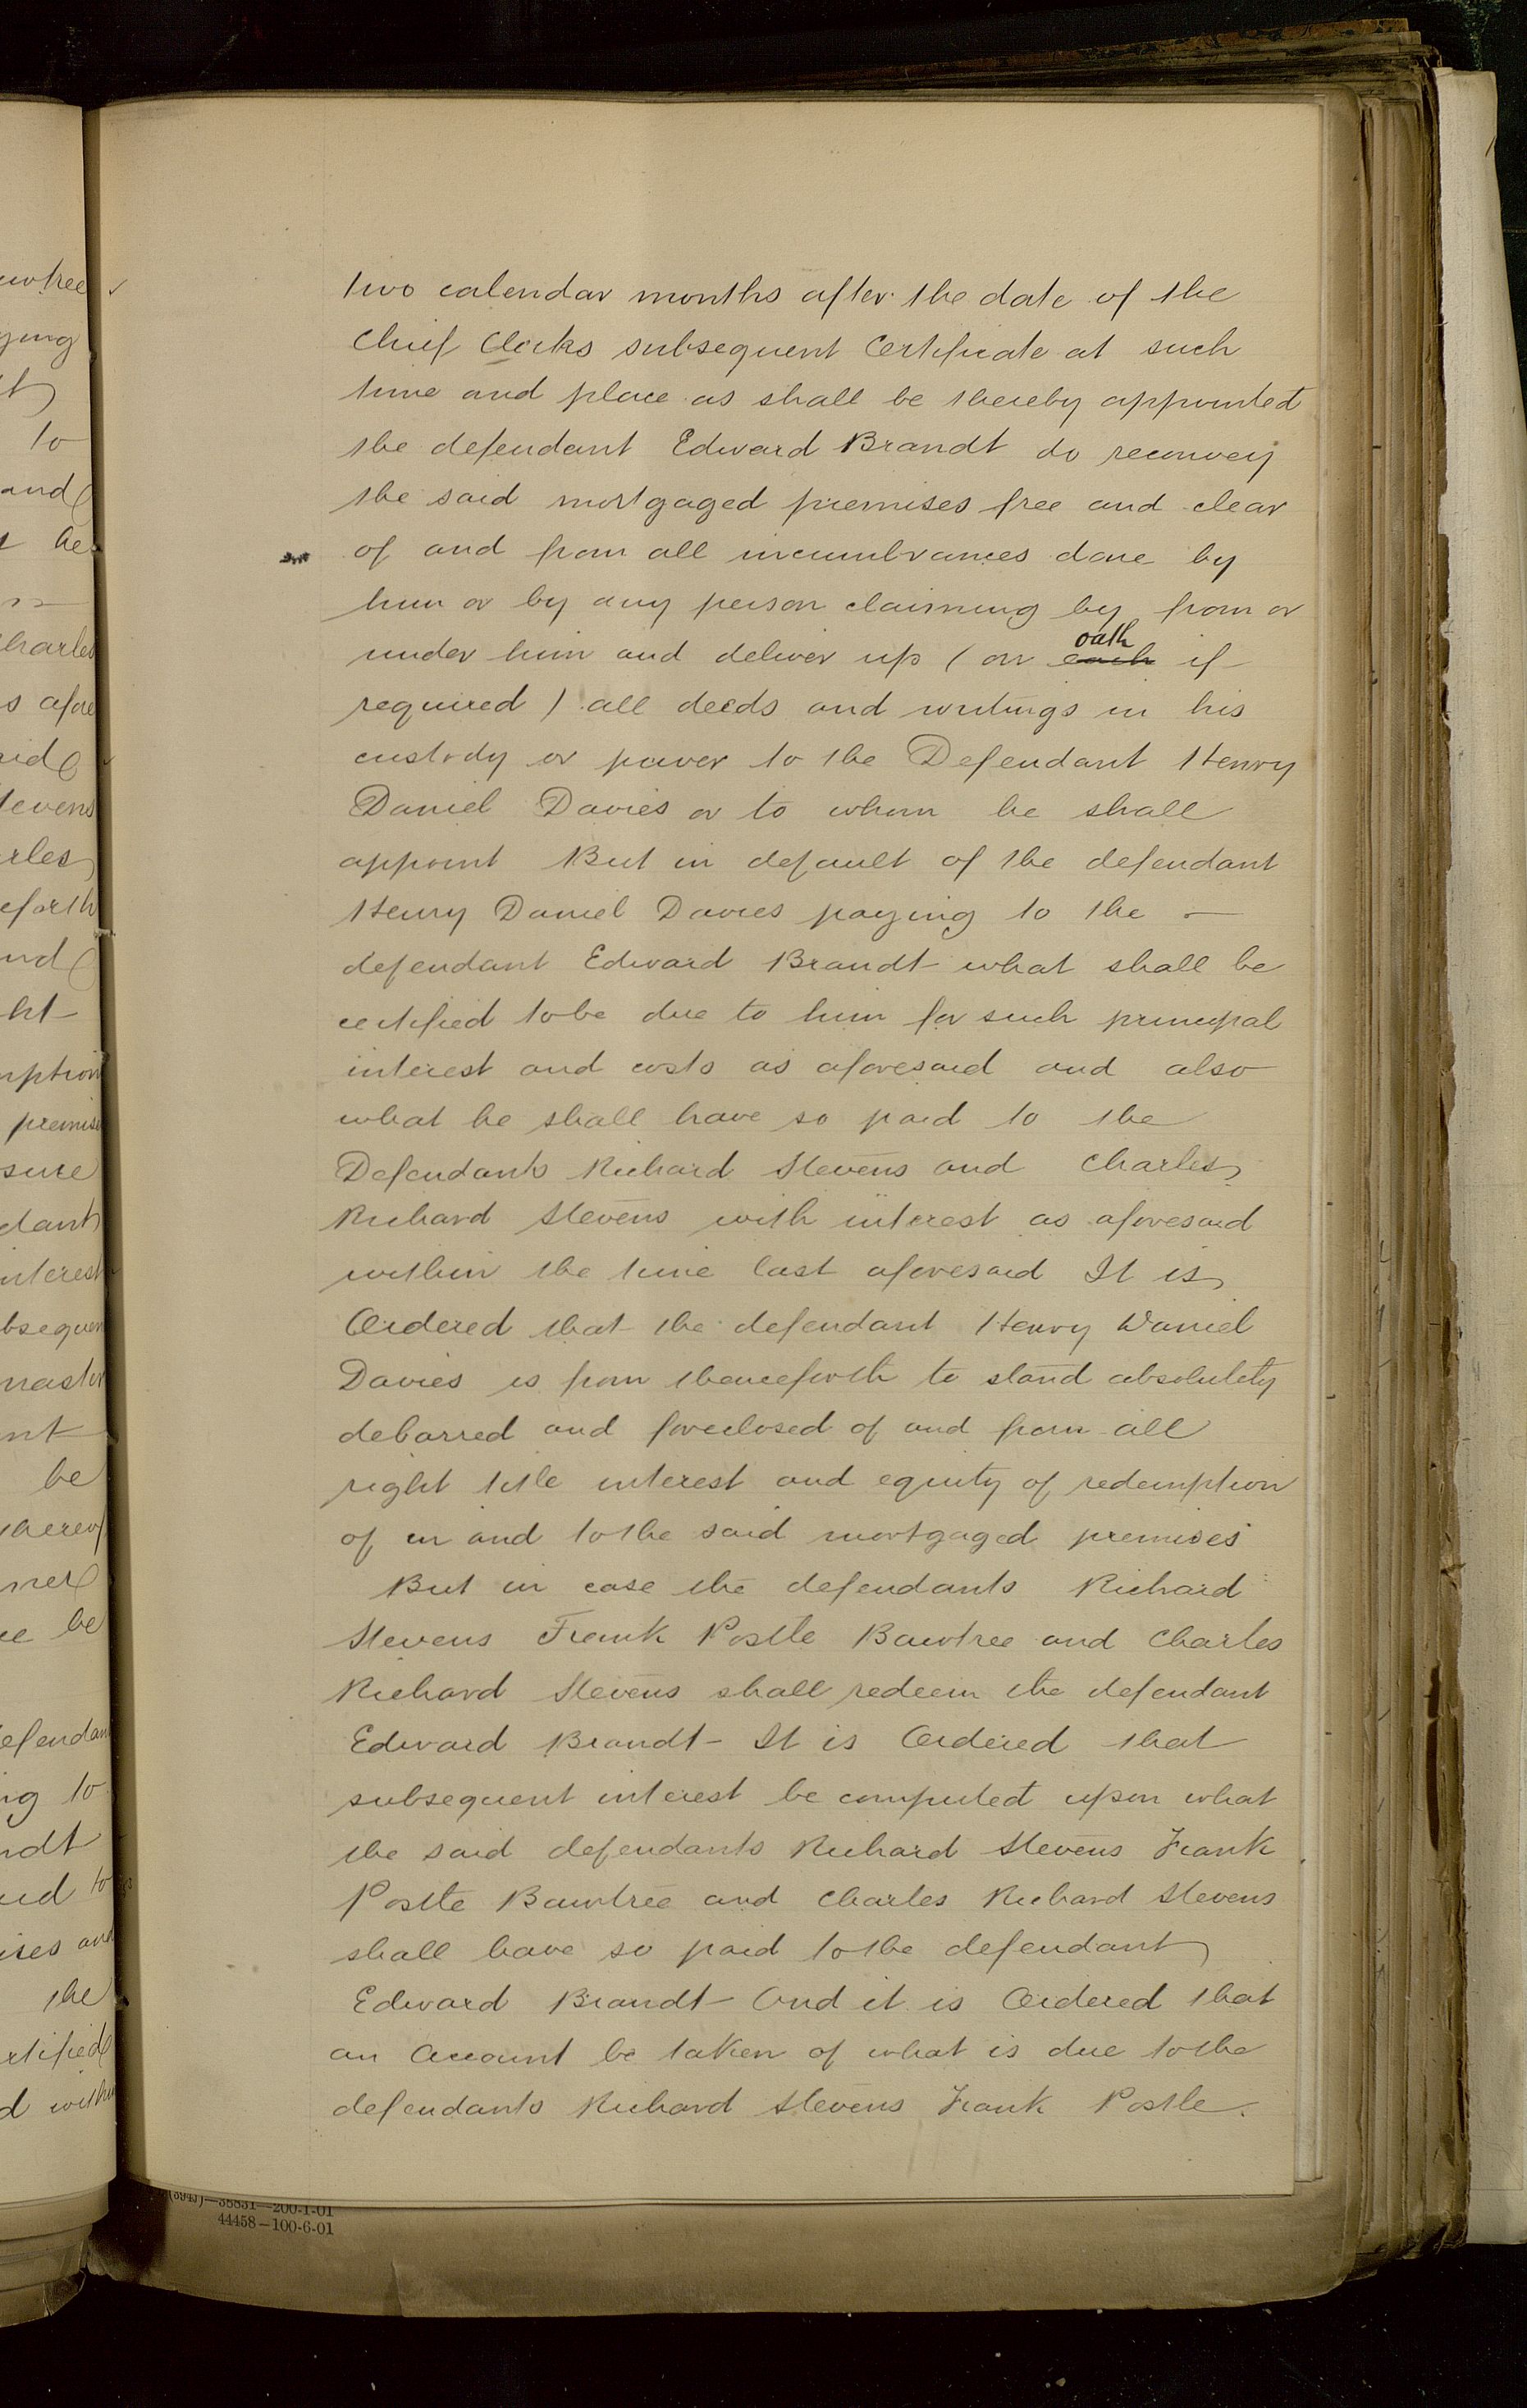 two calendar months after the date of the
Chief Clerks subsequent Certificate at such
time and place as shall be thereby appointed
the defendant Edward Brandt do reconvey
the said mortgaged premises free and clear
of and from all incumbrances done by
him or by any person claiming by from or
oath
under him and deliver up (on each if
required) all deeds and writings in his
custody or power to the Defendant Henry
Daniel Davies or to whom he shall
appoint But in default of the defendant
Henry Daniel Davies paying to the —
defendant Edward Brandt what shall be
certified to be due to him for such principal
interest and costs as aforesaid and also
what he shall have so paid to the
Defendants Richard Stevens and Charles
Richard Stevens with interest as aforesaid
within the time last aforesaid It is
Ordered that the defendant Henry Daniel
Davies is from thenceforth to stand absolutely
debarred and foreclosed of and from all
right title interest and equity of redemption
of in and to the said mortgaged premises
But in case the defendants Richard
Stevens Frank Postle Bawtree and Charles
Richard Stevens shall redeem the defendant
Edward Brandt – It is Ordered that
subsequent interest be computed upon what
the said defendants Richard Stevens Frank
Postle Bawtree and Charles Richard Stevens
shall have so paid to the defendant
Edward Brandt – And it is Ordered that
an Account be taken of what is due to the
defendants Richard Stevens Frank Postle
38831—200-1-01
44458—100-6-01